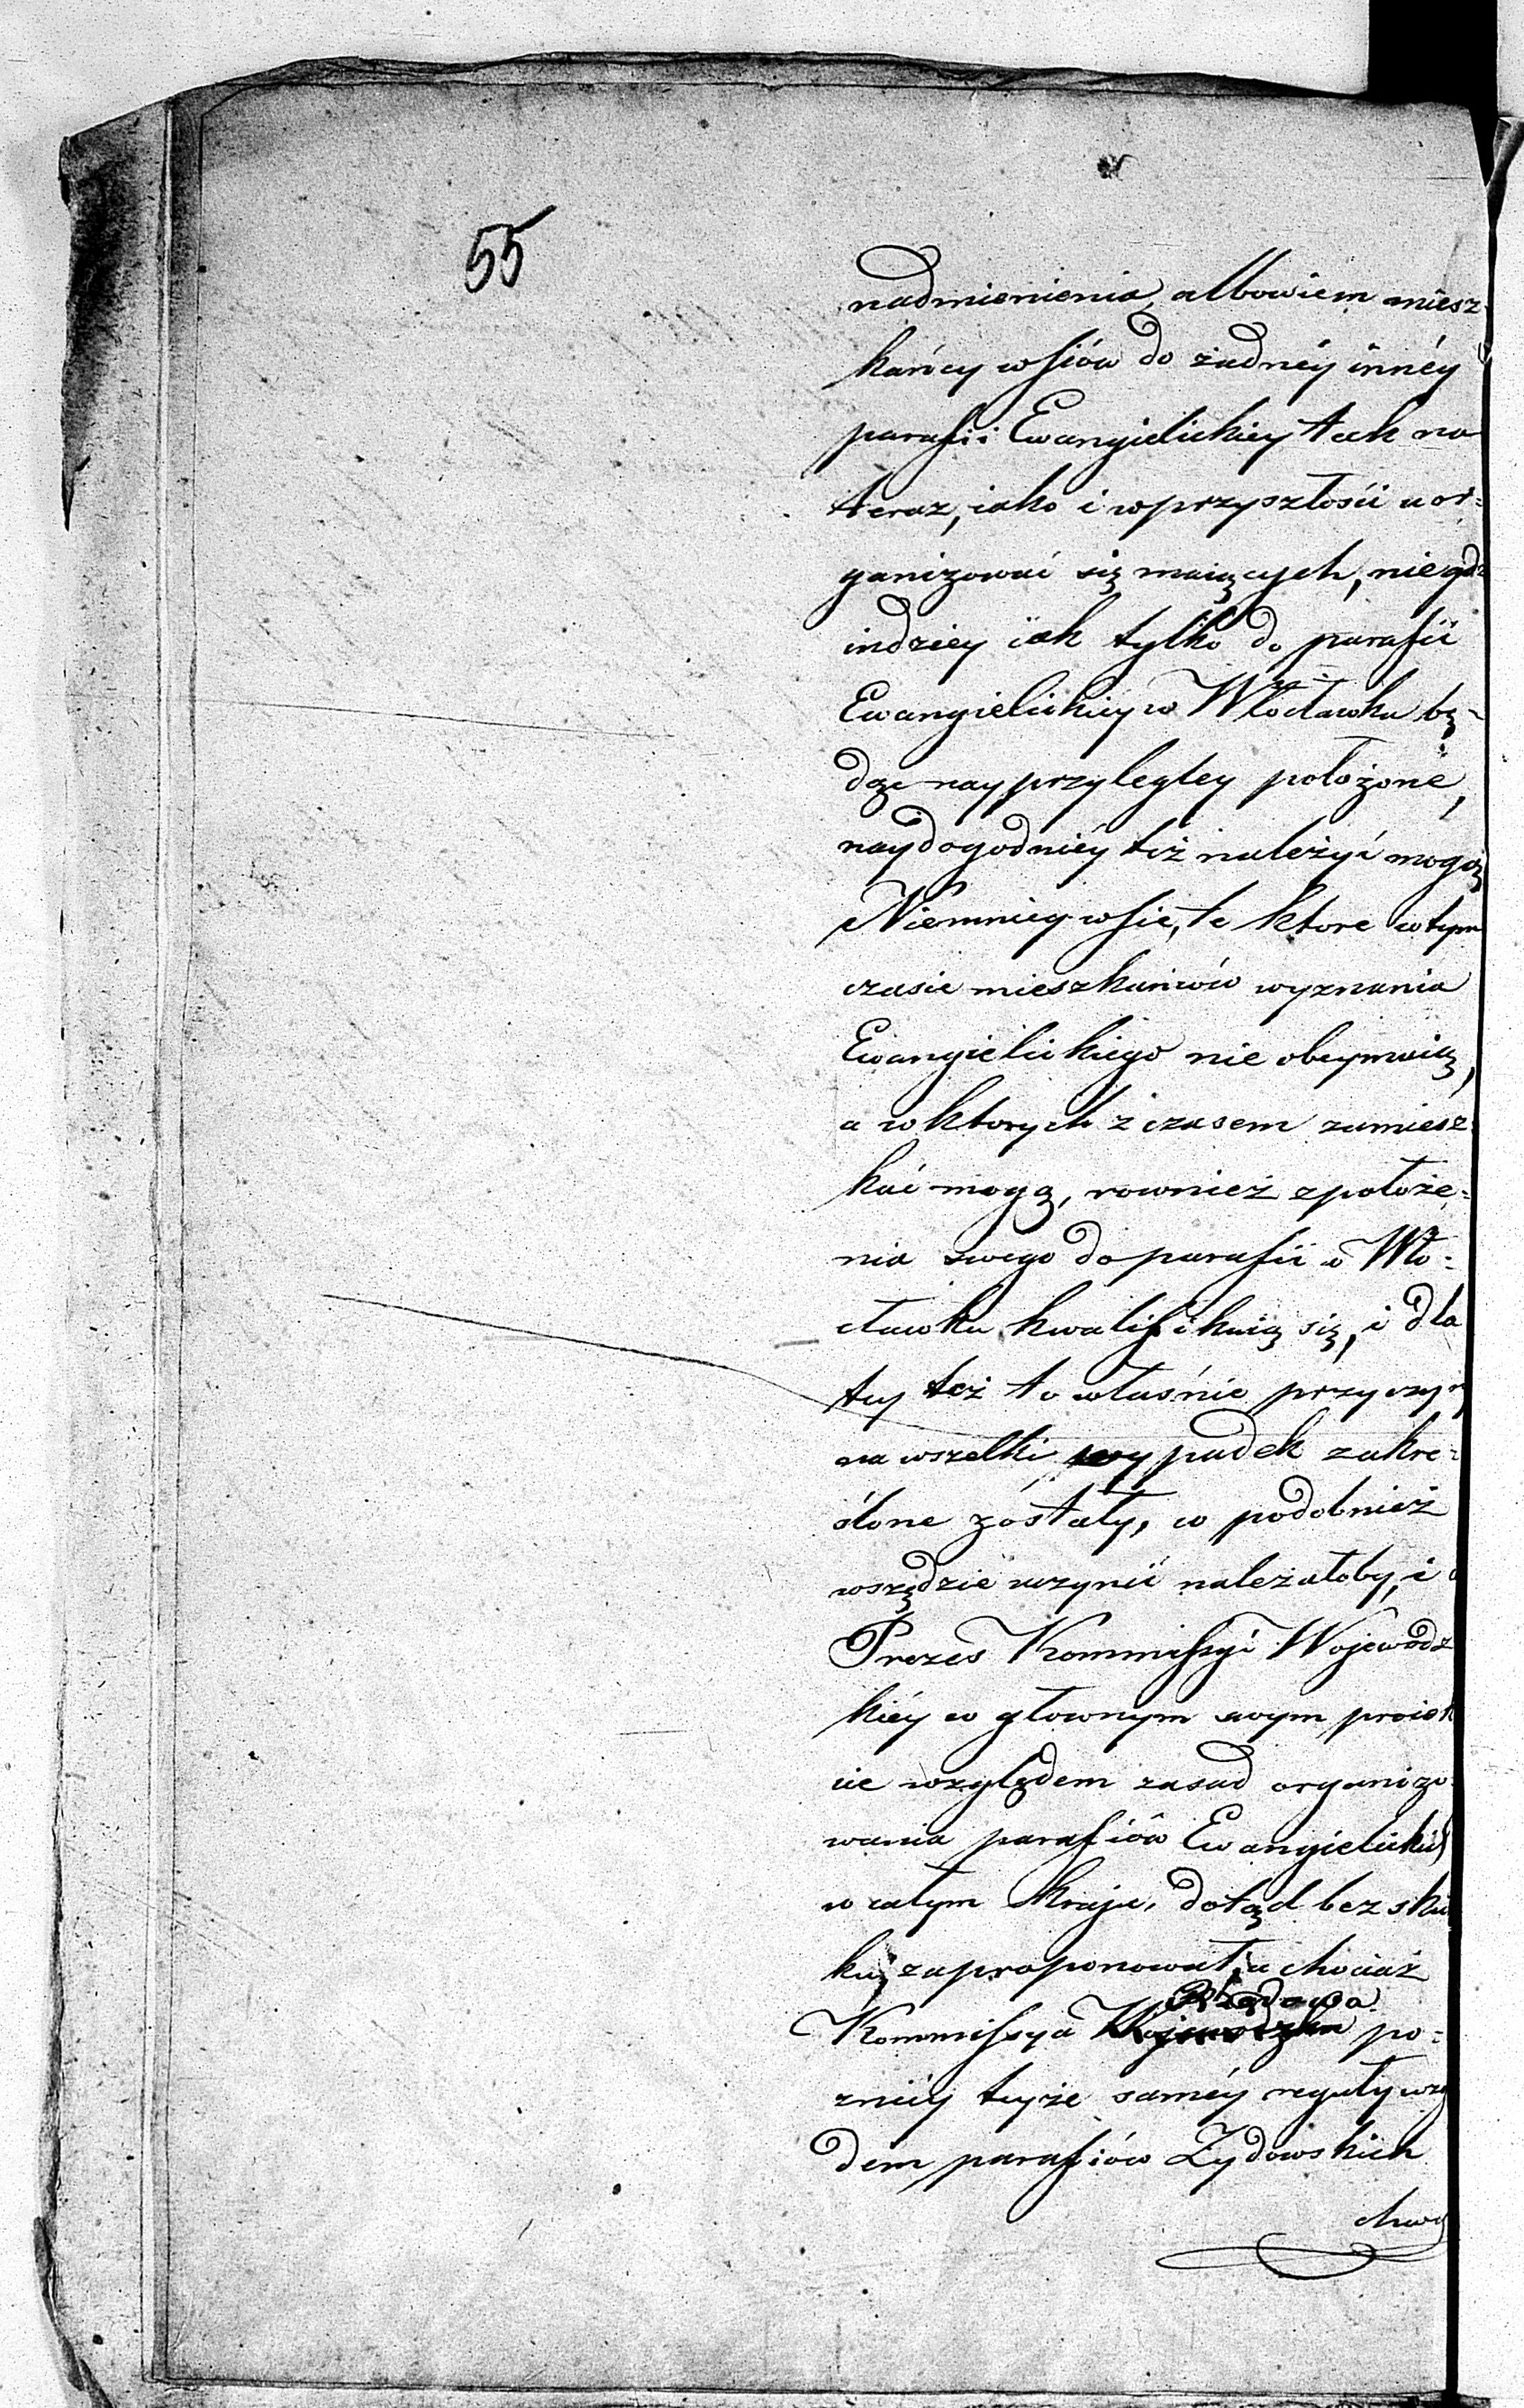 55
nadmienienia, albowiem miesz-
kańcy wsiów do żadnéy innéy
parafii Ewangielickiey tak na
teraz, iako i w przyszłości uor=
ganizować się maiących, nie gdz
indziey iak tylko do parafii
Ewangielickiéy w Włocławku bę-
dąc nayprzyległey położone,
naydogodniéy téż należyć mogą
Niemniey wsie, te ktore w tym
czasie mieszkańców wyznania
Ewangielickiego nie obeymuią,
a w ktorych z czasem zamiesz
kać mogą, rownież z położe=
nia swego do parafii w Wło-
cławku kwalifikuią się, i dla
tey też to właśnie przyczyny
na wszelki wypadek zakre=
ślone zóstały, co podobnież
wszędzie uczynić należałoby, i
Prezes Kommissyi Wojewodz
kiéy w głownym swym proiek
cie względem zasad organizo
wania parafiów Ewangielickich
w całym Kraju, dotąd bez sku
ku, zaproponował, a chociaż
Rządowa
Kommissya Wojewodzka po=
zniéy teyże saméy reguły wzg
dem parafiów Żydowskich
chwy